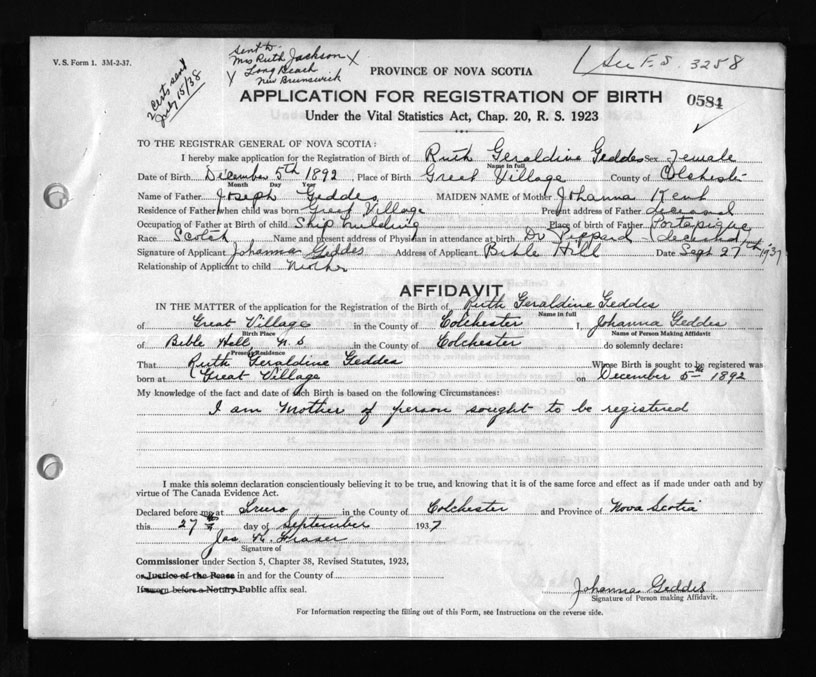 V. S. Form 1. 3M-2-37.
2 certs sent
July 15/38
Sent to
Mrs Ruth Jackson
Long Reach
New Brunswick
See F.S. 3258
PROVINCE OF NOVA SCOTIA
APPLICATION FOR REGISTRATION OF BIRTH
0584
Under the Vital Statistics Act, Chap. 20, R. S. 1923
TO THE REGISTRAR GENERAL OF NOVA SCOTIA:
I hereby make application for the Registration of Birth of Ruth Geraldine Geddes Sex Female
Name in full
Date of Birth December 5th 1892 Place of Birth Great Village County of Colchester
Month Day Year
Name of Father Joseph Geddes MAIDEN NAME of Mother Johanna Kent
Residence of Father when child was born Great Village Present address of Father deceased
Occupation of Father at Birth of child Ship building Place of birth of Father Portapique
Race Scotch Name and present address of Physician in attendance at birth Dr Peppard (deceased)
Signature of Applicant Johanna Geddes Address of Applicant Bible Hill Date Sept 27th 1937
Relationship of Applicant to child Mother
AFFIDAVIT
IN THE MATTER of the application for the Registration of the Birth of Ruth Geraldine Geddes
Name in full
of Great Village in the County of Colchester I, Johanna Geddes
Birth Place Name of Person Making Affidavit
of Bible Hill, N.S in the County of Colchester do solemnly declare:
Present Residence
That Ruth Geraldine Geddes Whose Birth is sought to be registered was
born at Great Village on December 5th 1892
My knowledge of the fact and date of such Birth is based on the following Circumstances:
I am Mother of person sought to be registered
I make this solemn declaration conscientiously believing it to be true, and knowing that it is of the same force and effect as if made under oath and by
virtue of The Canada Evidence Act.
Declared before me at Truro in the County of Colchester and Province of Nova Scotia
this 27th day of September 1937
Jas Fraser
Signature of
Commissioner under Section 5, Chapter 38, Revised Statutes, 1923,
or Justice of the Peace in and for the County of
If sworn before a Notary Public affix seal.
Johanna Geddes
Signature of Person making Affidavit.
For Information respecting the filling out of this Form, see Instructions on the reverse side.